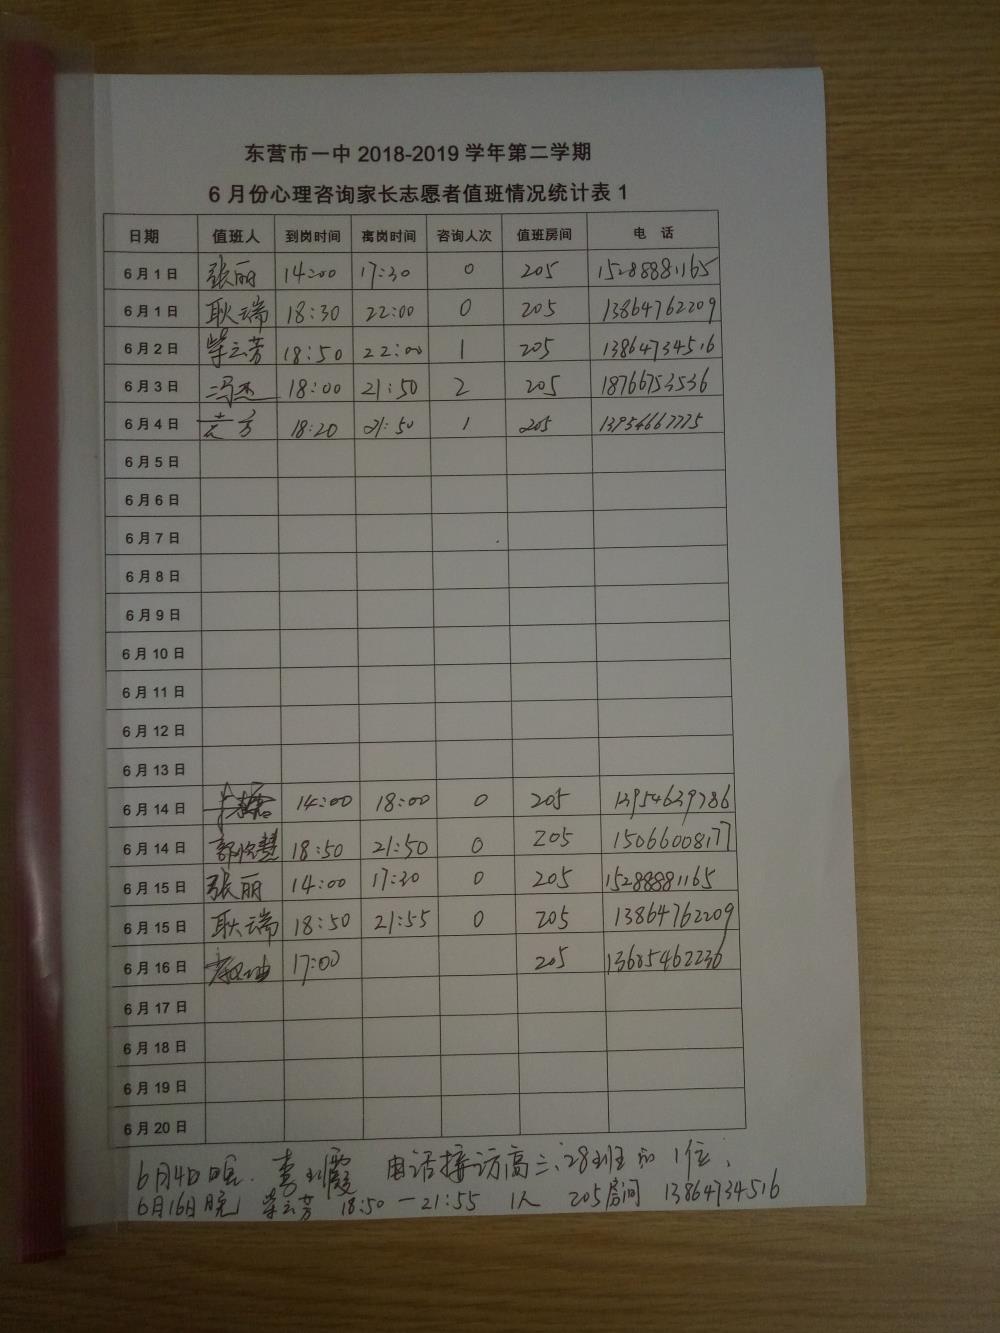 东营市一中 2018-2019 学年第二学期
6 月份心理咨询家长志愿者值班情况统计表 1
日期 值班人 到岗时间 离岗时间 咨询人次 值班房间 电 话
6 月 1 日 张丽 14:00 17:30 0 205 15288881165
6 月 1 日 耿端 18:30 22:00 0 205 13864762209
6 月 2 日 柴云芳 18:50 22:00 1 205 13864734516
6 月 3 日 冯杰 18:00 21:50 2 205 18766753536
6 月 4 日 18:20 21:50 1 205 13954667775
6 月 5 日
6 月 6 日
6 月 7 日
6 月 8 日
6 月 9 日
6 月 10 日
6 月 11 日
6 月 12 日
6 月 13 日
6 月 14 日 14:00 18:00 0 205 13954639786
6 月 14 日 18:50 21:50 0 205 15066008177
6 月 15 日 张丽 14:00 17:30 0 205 15288881165
6 月 15 日 耿端 18:50 21:55 0 205 13864762209
6 月 16 日 17:00 205 13605462236
6 月 17 日
6 月 18 日
6 月 19 日
6 月 20 日
6月4日晚. 李 霞 电话接访高三.28班的1位.
6月16日晚 柴云芳 18:50—21:55 1人 205房间 13864734516